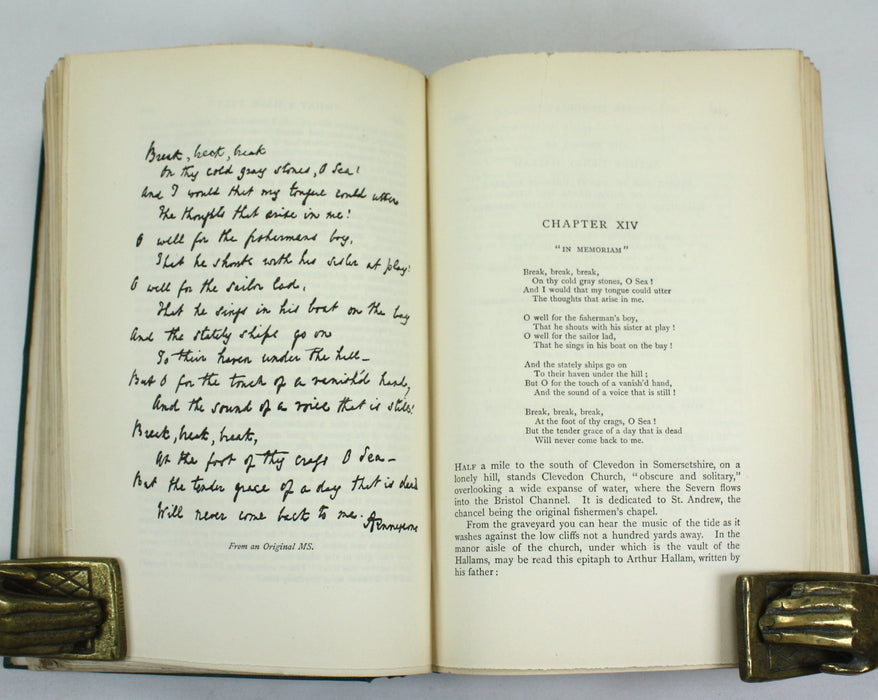 Break, break, break
On thy cold gray stones, O Sea!
And I would that my tongue could utter
The thoughts that arise in me!
O well for the fishermans boy,
That he shouts with his sister at play!
O well for the sailor lad,
That he sings in his boat on the bay
And the stately ships go on
To their haven under the hill—
But O for the touch of a vanish'd hand,
And the sound of a voice that is still!
Break, break, break,
At the foot of thy crags O Sea—
But the tender grace of a day that is dead
Will never come back to me. ATennyson
From an Original MS.
CHAPTER XIV
"IN MEMORIAM"
Break, break, break,
On thy cold gray stones, O Sea!
And I would that my tongue could utter
The thoughts that arise in me.
O well for the fisherman's boy,
That he shouts with his sister at play!
O well for the sailor lad,
That he sings in his boat on the bay!
And the stately ships go on
To their haven under the hill;
But O for the touch of a vanish'd hand,
And the sound of a voice that is still!
Break, break, break,
At the foot of thy crags, O Sea!
But the tender grace of a day that is dead
Will never come back to me.
HALF a mile to the south of Clevedon in Somersetshire, on a
lonely hill, stands Clevedon Church, "obscure and solitary,"
overlooking a wide expanse of water, where the Severn flows
into the Bristol Channel. It is dedicated to St. Andrew, the
chancel being the original fishermen's chapel.
From the graveyard you can hear the music of the tide as it
washes against the low cliffs not a hundred yards away. In the
manor aisle of the church, under which is the vault of the
Hallams, may be read this epitaph to Arthur Hallam, written by
his father: